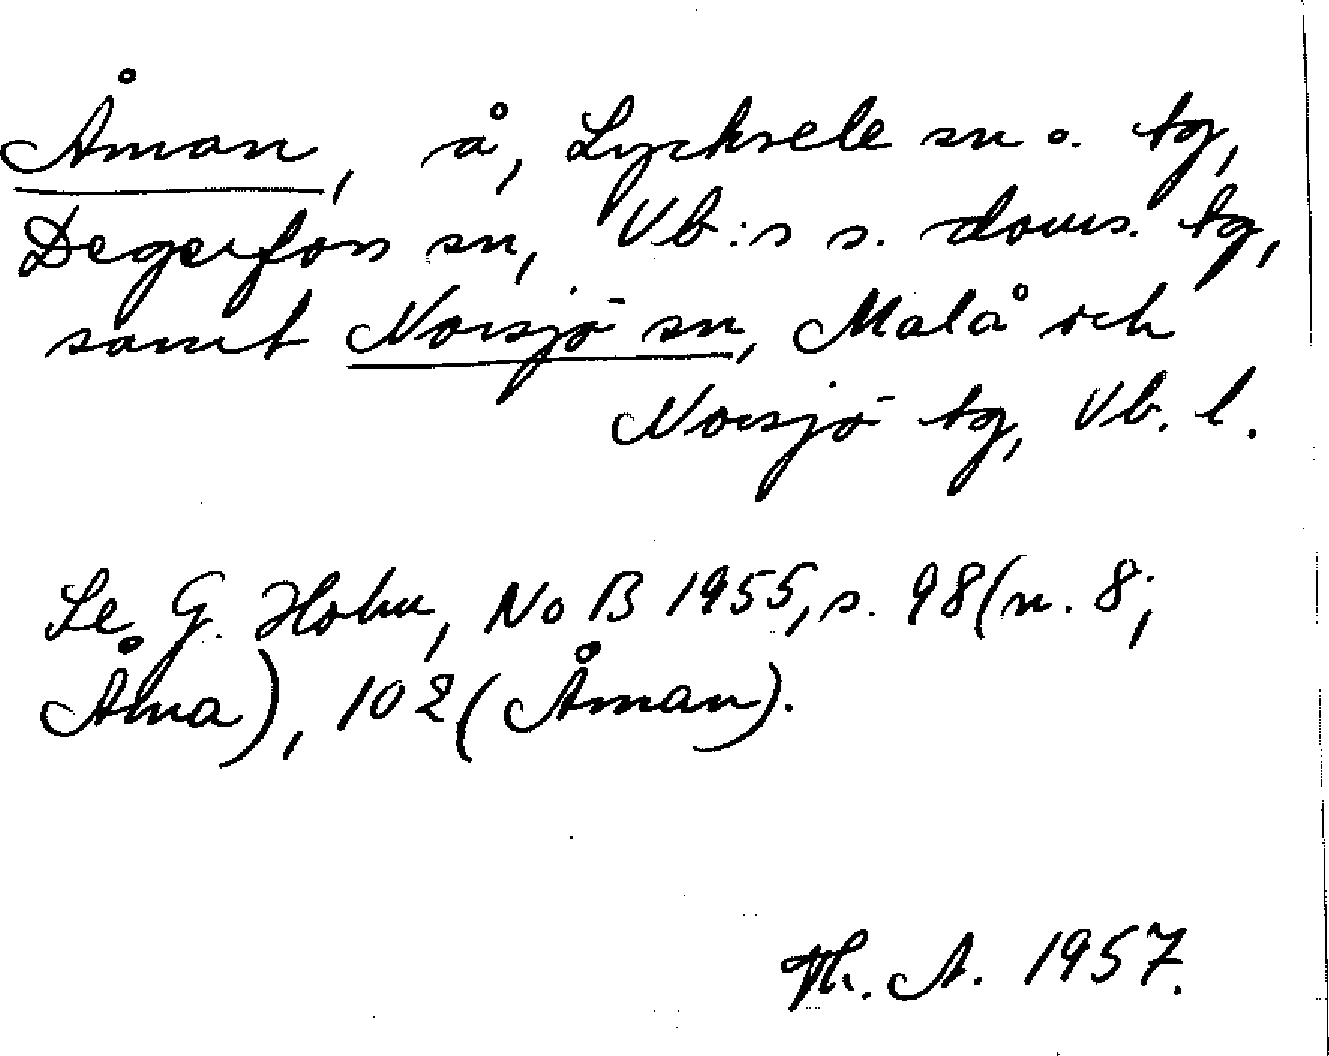 Åman, å, Lycksele sn o. tg,
Degerfors sn, Vb:s s. doms. tg,
samt Norsjö sn, Malå och
Norsjö tg, Vb. l.
Se G. Holm, NoB 1955, s. 98 (n. 8;
Åma), 102 (Åman).
Th. A. 1957.